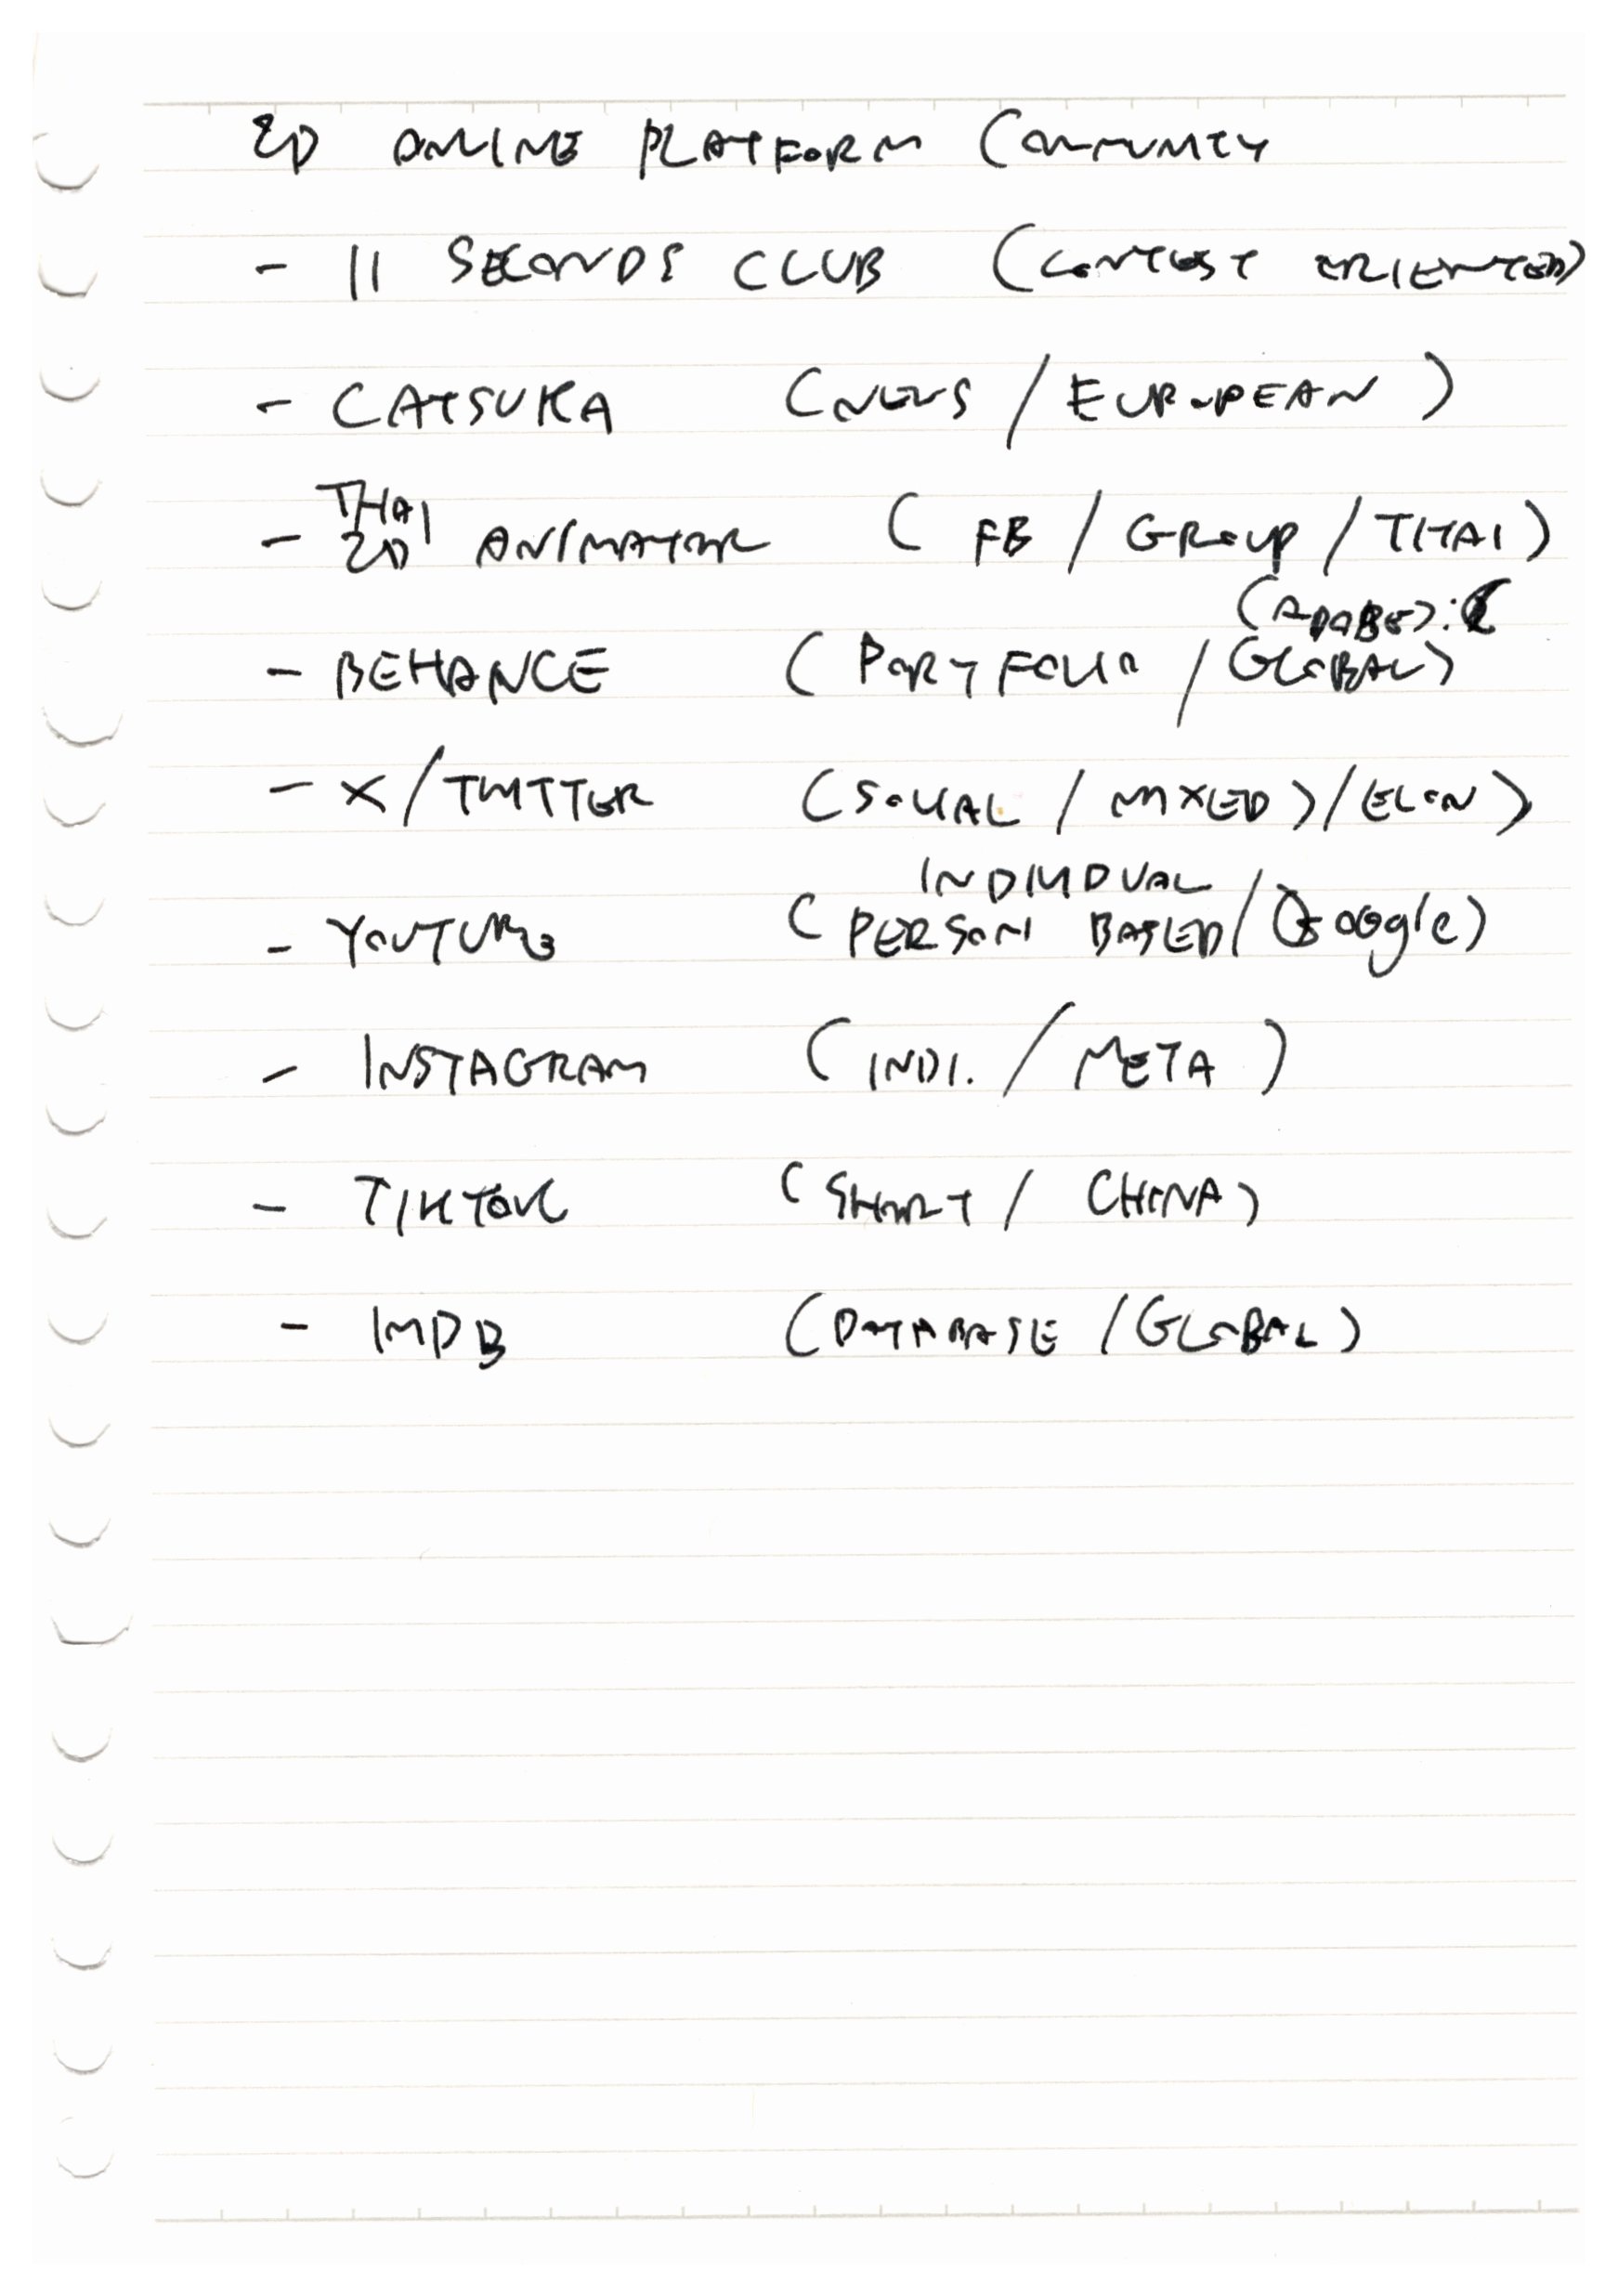 2D ONLINE PLATFORM COMMUNITY
- 11 SECONDS CLUB (CONTEST ORIENTED)
- CATSUKA (NEWS / EUROPEAN)
THAI
- 2D ANIMATOR ( FB / GROUP / THAI)
(ADOBE) :(
- BEHANCE ( PORTFOLIO / GLOBAL)
- X/TWITTER (SOCIAL / MIXED) / ELON)
INDIVIDUAL
- YOUTUBE ( PERSON BASED / Google)
- INSTAGRAM ( INDI. / META )
- TIKTOK ( SHORT / CHINA)
- IMDB (DATABASE / GLOBAL)